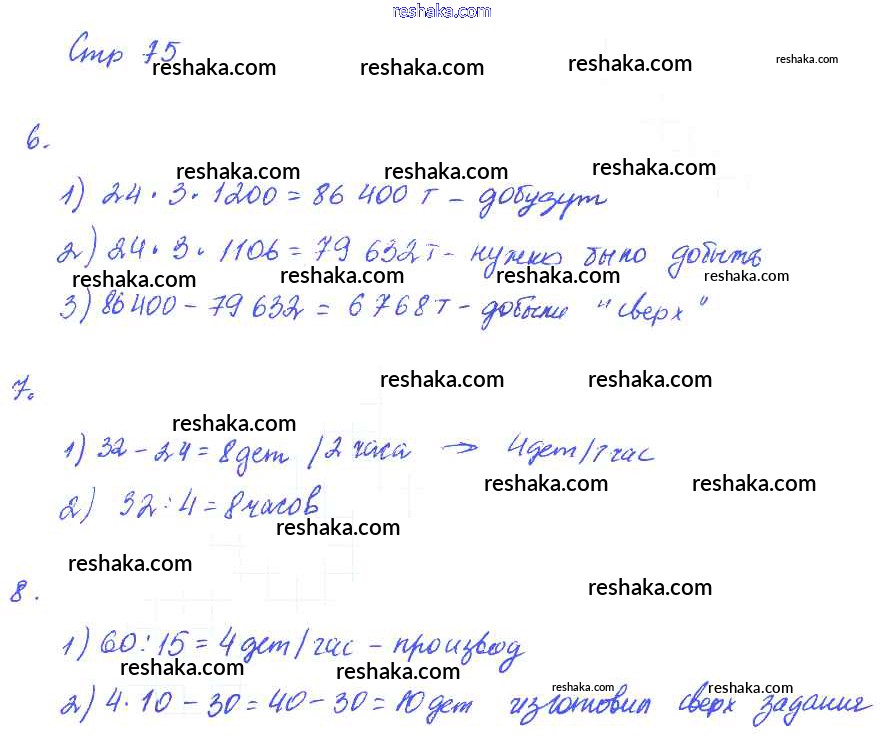 reshaka.com
Стр 75
reshaka.com reshaka.com reshaka.com reshaka.com
6.
reshaka.com reshaka.com reshaka.com
1) 24 · 3 · 1200 = 86 400 т – добудут
2) 24 · 3 · 1106 = 79 632 т – нужно было добыть
reshaka.com reshaka.com reshaka.com reshaka.com
3) 86400 – 79 632 = 6 768 т – добыли "сверх"
reshaka.com reshaka.com
7.
reshaka.com
1) 32 – 24 = 8 дет / 2 часа → 4 дет / 1 час
reshaka.com reshaka.com
2) 32 : 4 = 8 часов
reshaka.com
reshaka.com
reshaka.com
8.
1) 60 : 15 = 4 дет / час – производ
reshaka.com reshaka.com
reshaka.com reshaka.com
2) 4 · 10 – 30 = 40 – 30 = 10 дет изготовил сверх задания